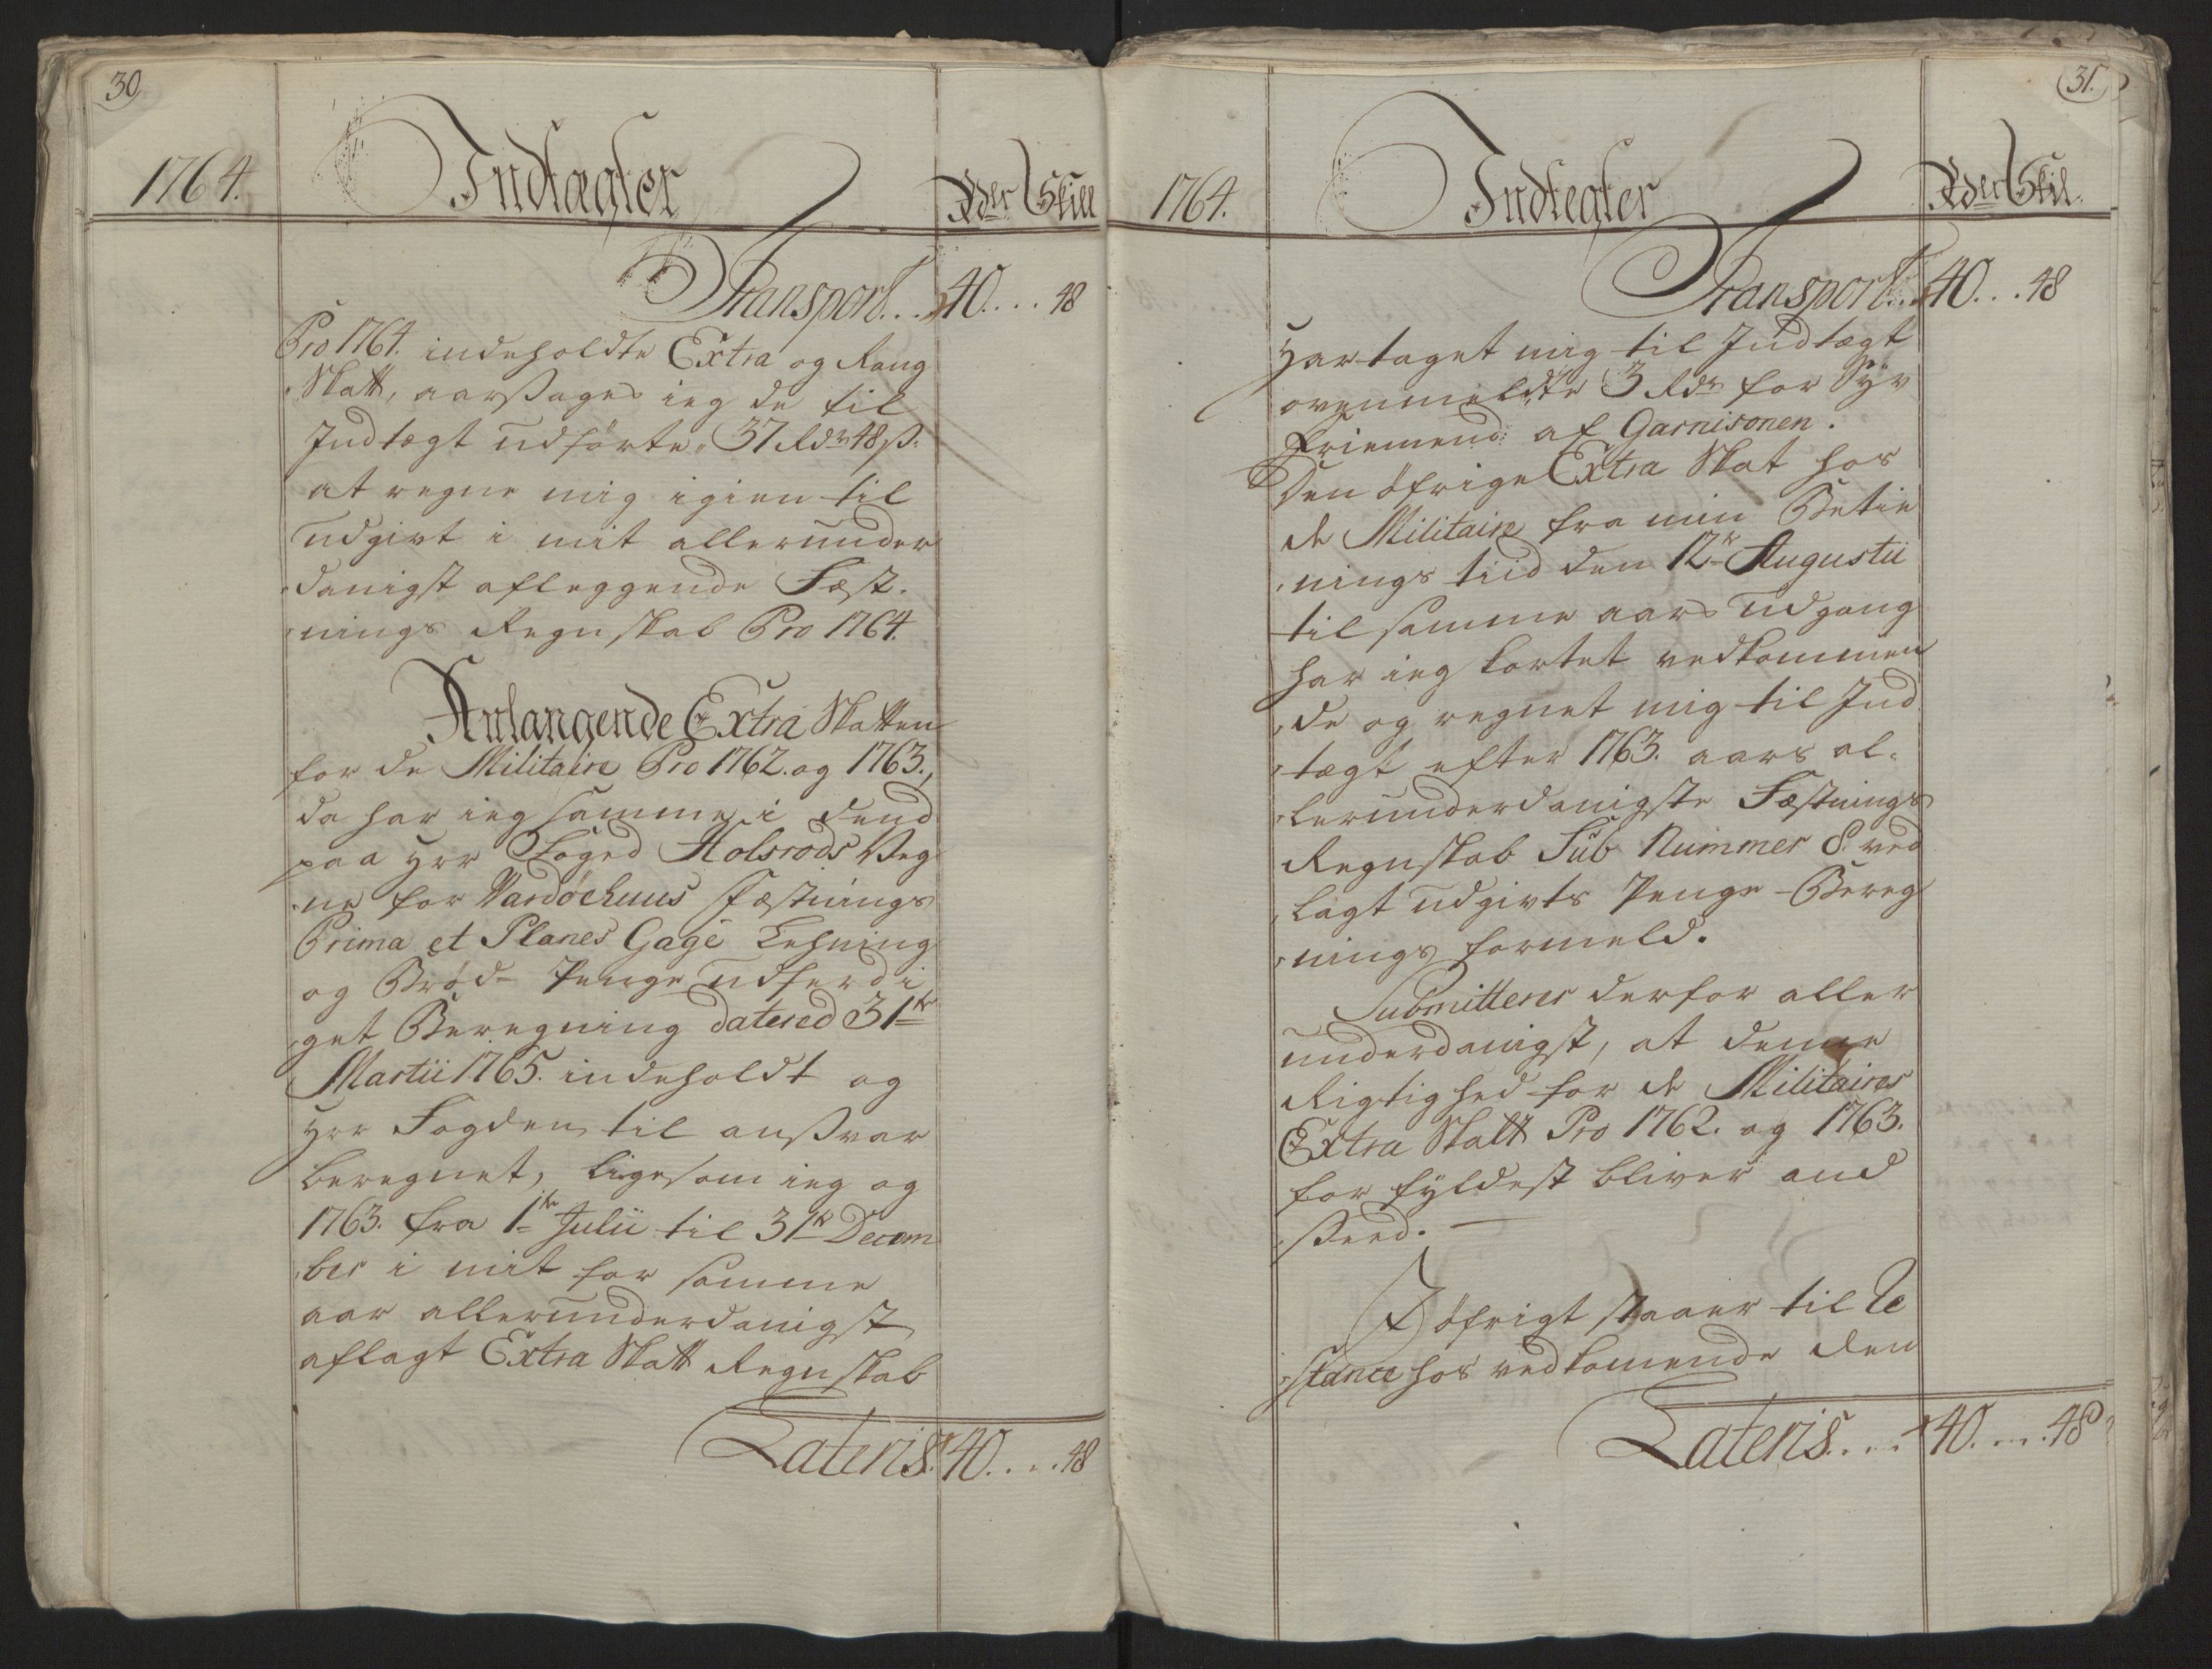 30
1764.
Indtægter
Rdr Skill
Transport... 40.... 48
Pro 1764. indeholdte Extra og Rang
Skatt, aarsages ieg de til
Indtægt udførte 37 Rdr 48 ß.
at regne mig igien til
udgivt i mit allerunder
danigst aflæggende Fæst-
nings Regnskab Pro 1764.
Anlangende Extra Skatten
for de Militaire Pro 1762. og 1763.,
da har ieg samme i dend
paa Hrr Foged Holsrods Veg
ne for Vardøehuus Fæstnings
Prima et Planes Gage Lehning
og Brød-Penge udferdi
get Beregning datered 31te
Martii 1765. indeholdt og
Hrr Fogden til ansvar
beregnet, ligesom ieg og
1763. fra 1te Julii til 31te Decem
ber i mit for samme
aar allerunderdanigst
aflagt Extra Skatt Regnskab
Lateris. 40.... 48
31.
1764.
Indtegter
Rder Skil.
Transport... 40... 48
Har taget mig til Indtægt
ovenmeldte 3 Rdr for Syv
Friemend af Garnisonen.
Den øfrige Extra Skat hos
de Militaire fra min Betie
nings tiid den 12te Augustii
til samme aars udgang
har ieg kortet vedkommen
de og regnet mig til Ind
tægt efter 1763. aars al-
lerunderdanigste Fæstnings
Regnskab Sub Nummer 8. ved
lagt udgivts Penge-Bereg
nings formeld.
Submitteres derfor aller
underdanigst, at denne
Rigtighed for de Militaires
Extra Skatt Pro 1762. og 1763.
for fyldest bliver and
seed.
I øfrigt staaer til Re
stance hos vedkomende den
Lateris.... 40.... 48